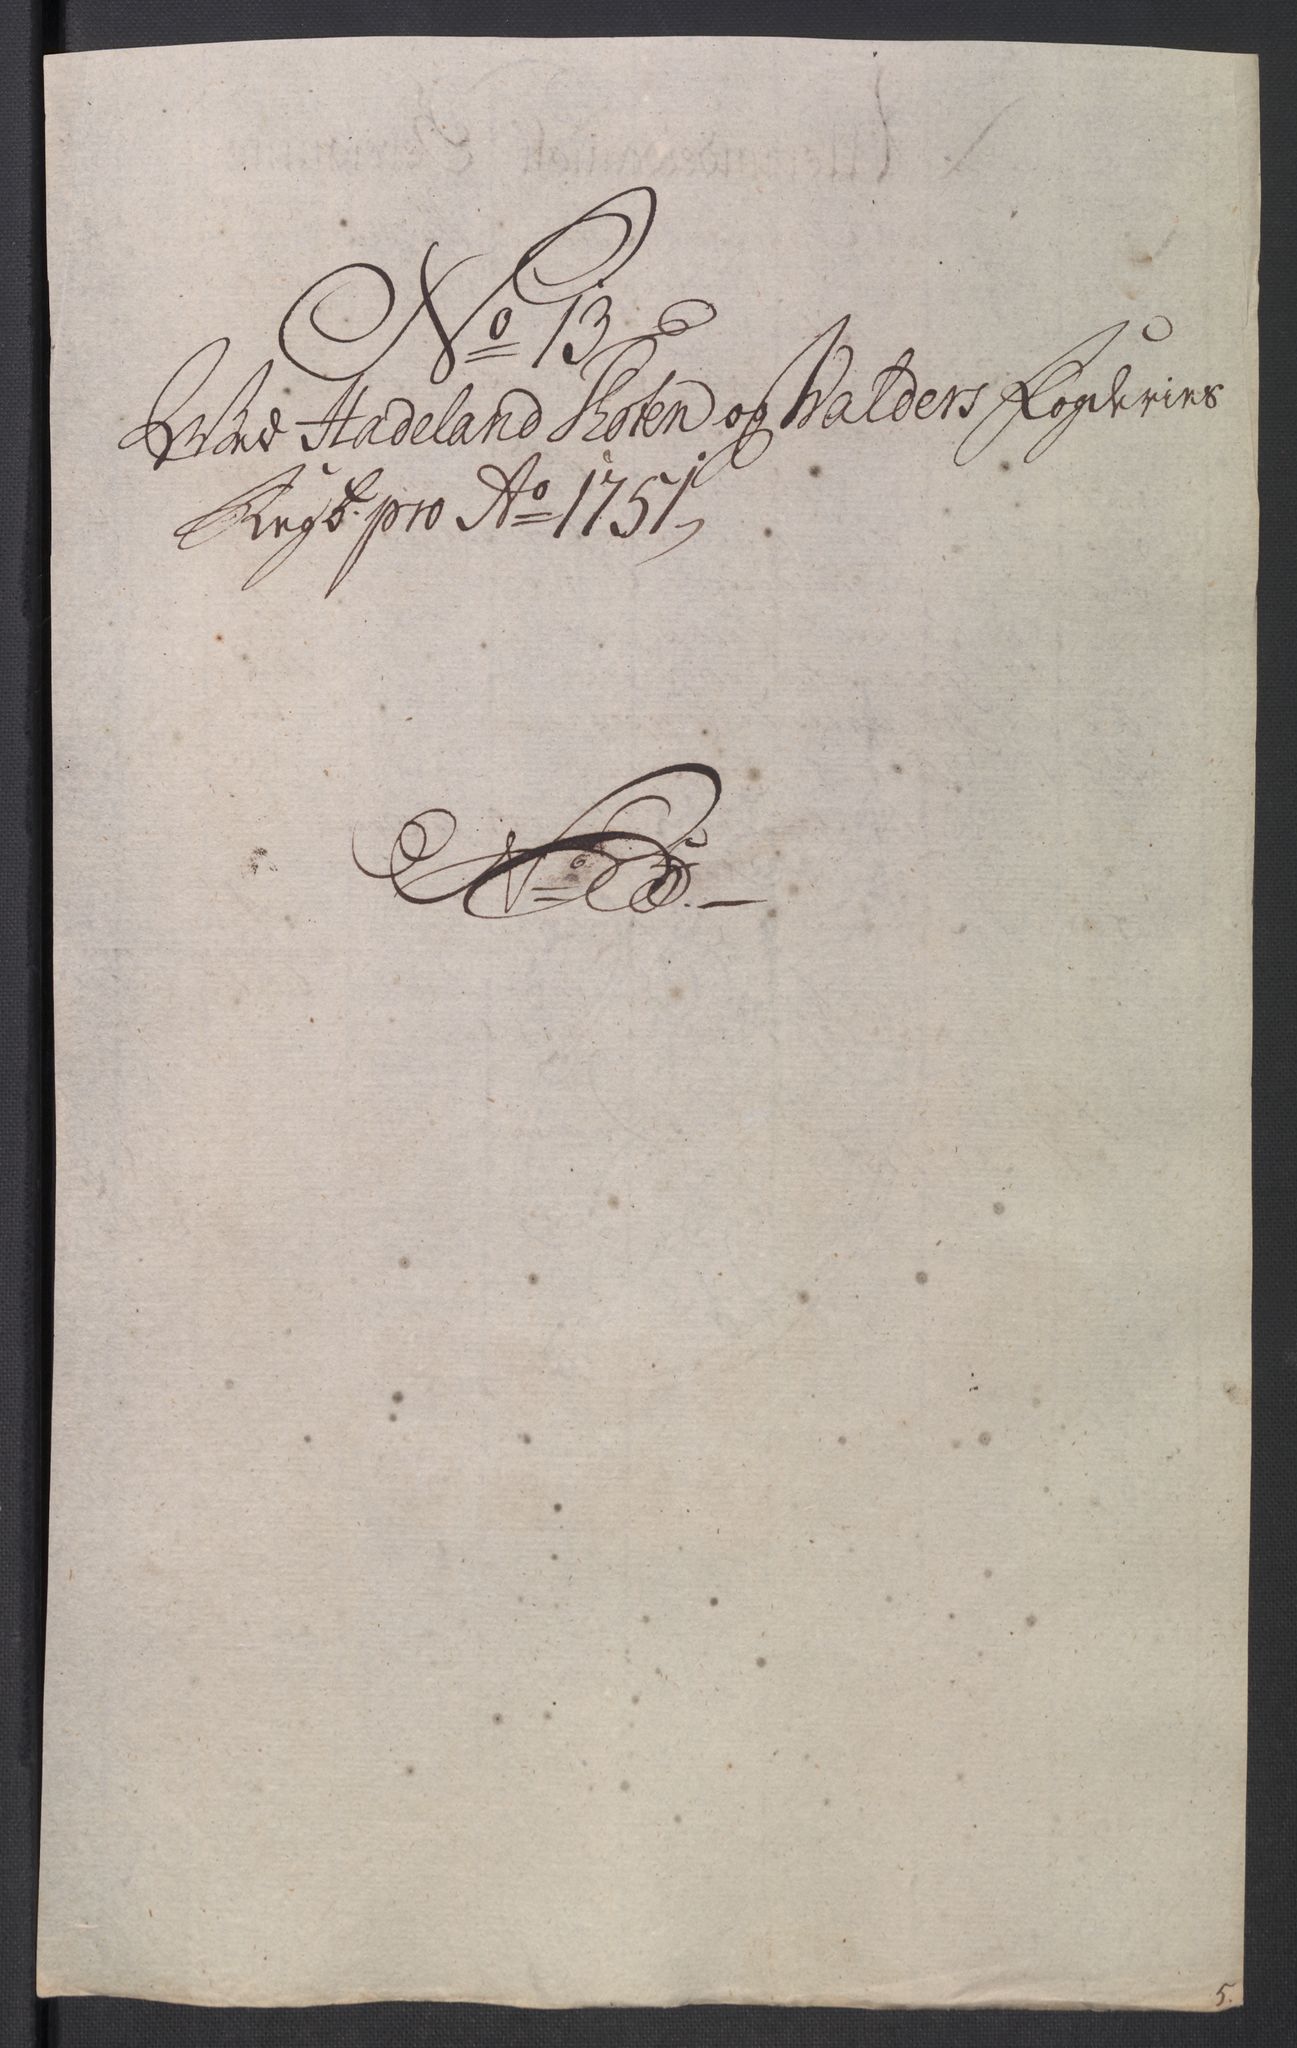 No 13
Wed Hadeland Thoten og Walders Fogderies
Regsk. pro Ao 1751,
No
5.